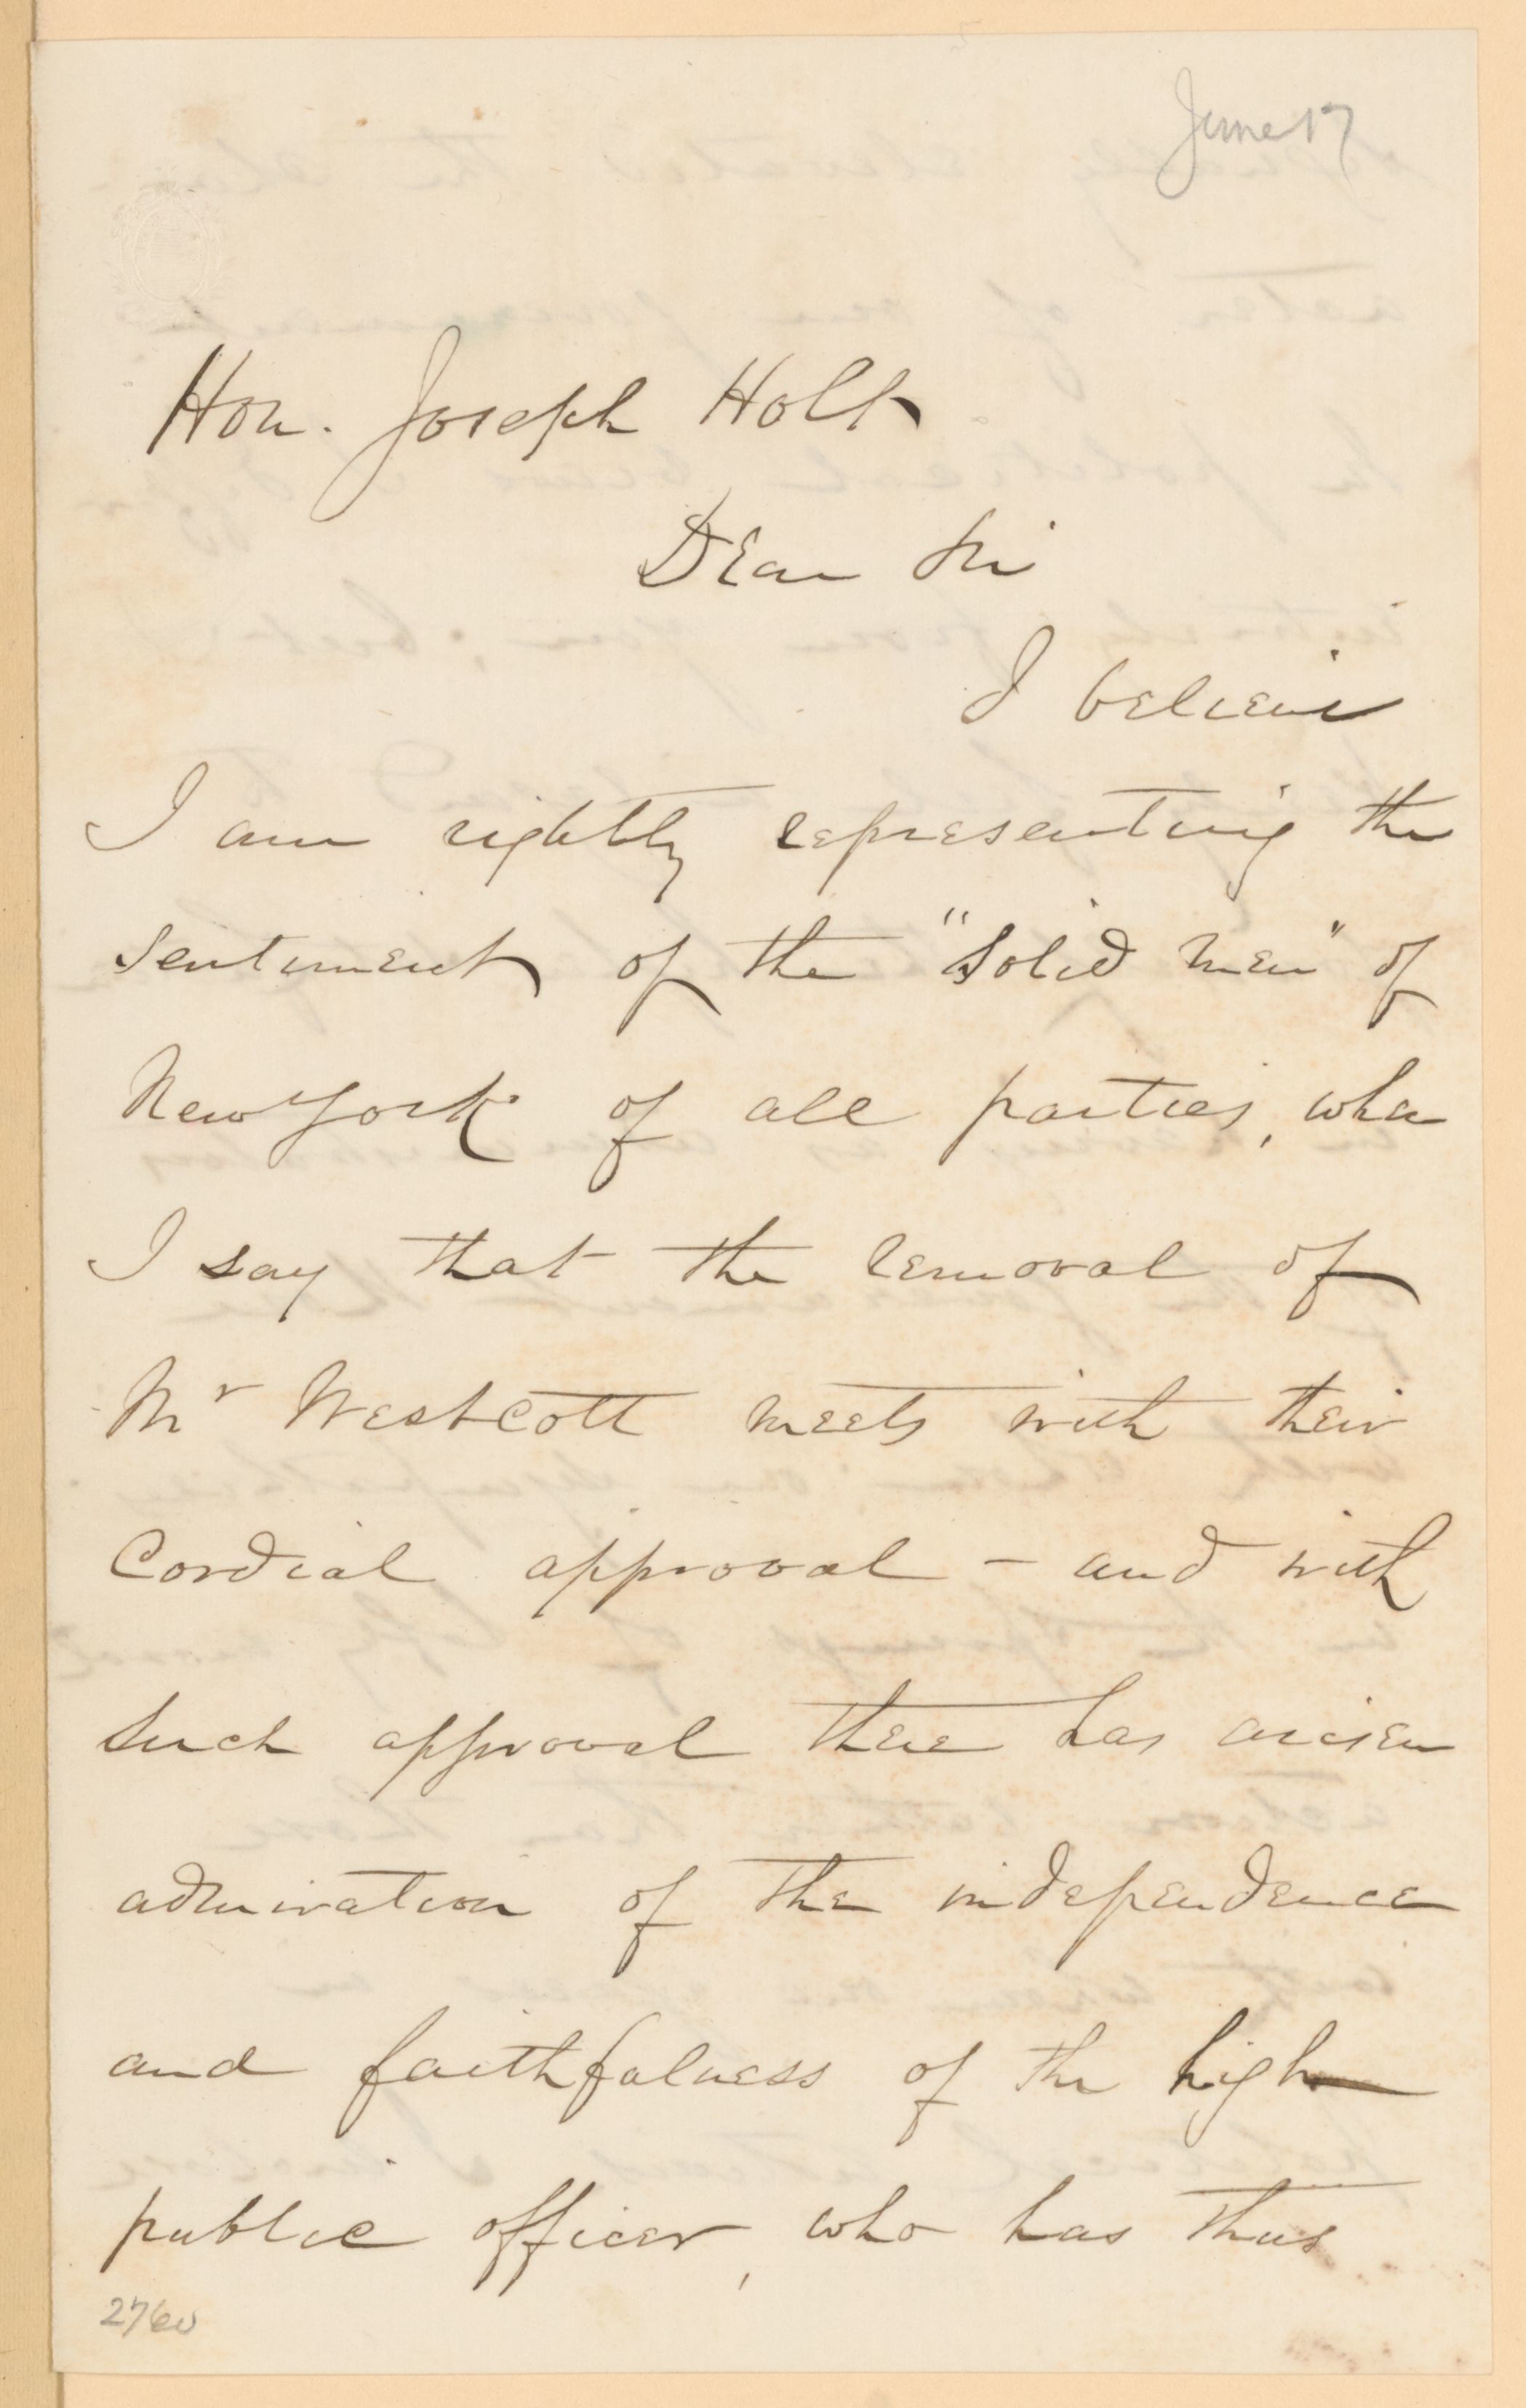 June 17
Hon. Joseph Holt
Dear Sir
I believe
I am rightly representing the
sentiment of the "solid men" of
New York of all parties, when
I say that the removal of
Mr Westcott meets with their
cordial approval - and with
such approval there has arisen
admiration of the independence
and faithfulness of the high
public officer, who has thus
2760